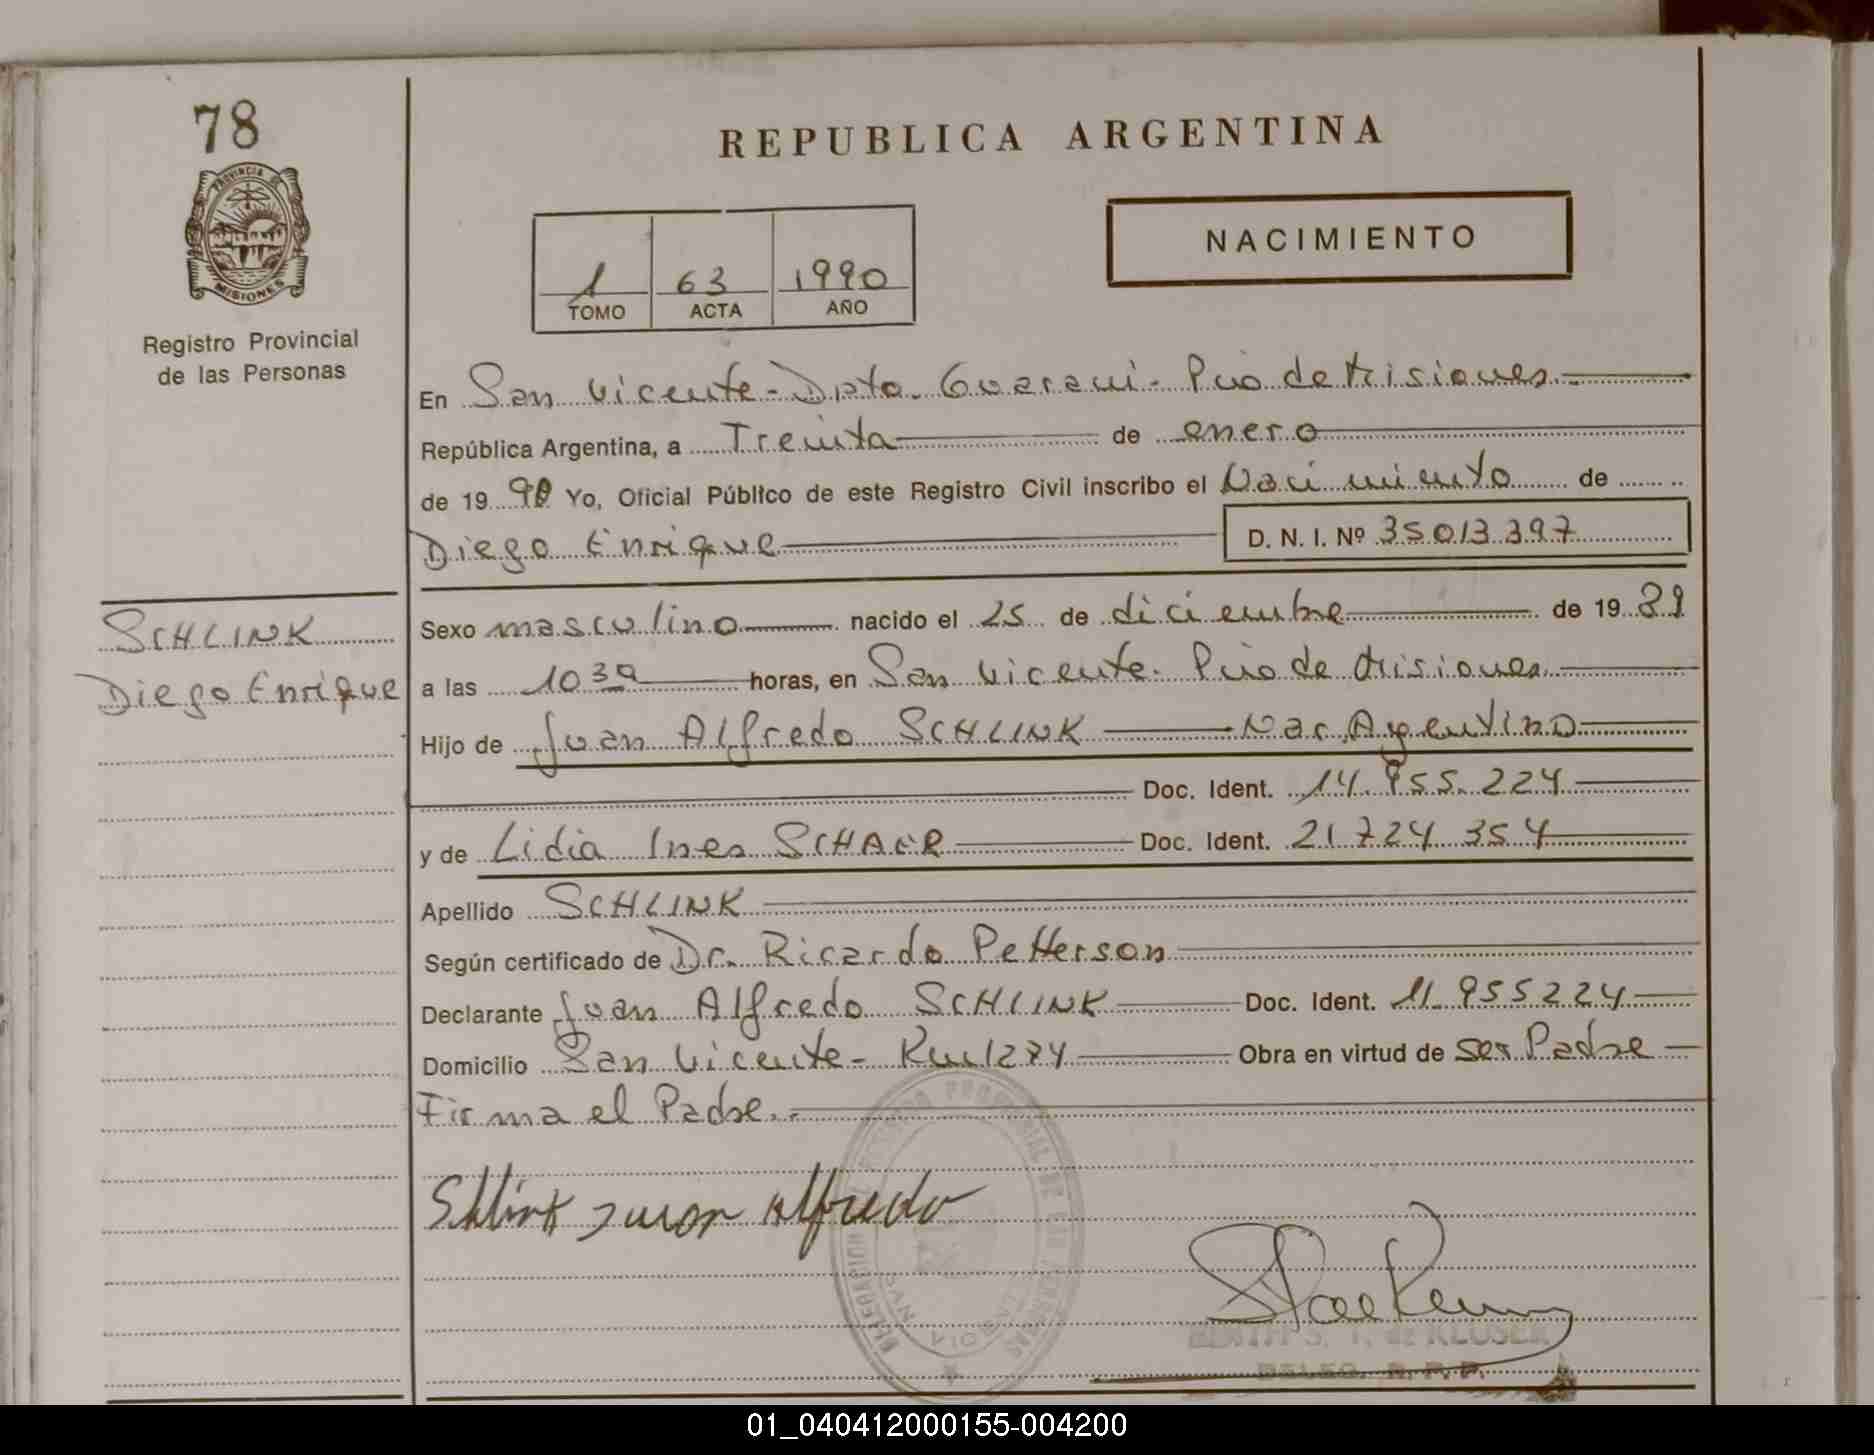 78
REPUBLICA ARGENTINA
PROVINCIA DE
MISIONES
Registro Provincial
de las Personas
1 63 1990
TOMO ACTA AÑO
NACIMIENTO
En San Vicente - Dpto. Guaraní - Pcio de Misiones.-
República Argentina, a Treinta de enero
de 19 90 Yo, Oficial Público de este Registro Civil inscribo el Nacimiento de
Diego Enrique D. N. I. Nº 35013397
SCHLINK
Diego Enrique
Sexo masculino nacido el 25 de diciembre de 19 89
a las 10 30 horas, en San Vicente. Pcio de Misiones.
Hijo de Juan Alfredo SCHLINK Nac. Argentino
Doc. Ident. 14.955.224
y de Lidia Ines SCHAER Doc. Ident. 21 724 354
Apellido SCHLINK
Según certificado de Dr. Ricardo Petterson
Declarante Juan Alfredo SCHLINK Doc. Ident. 11 955224
Domicilio San Vicente - Km 1274 Obra en virtud de ser Padre
Firma el Padre.-
Shlink Juan Alfredo
DELEG. R. P. P.
01_040412000155-004200